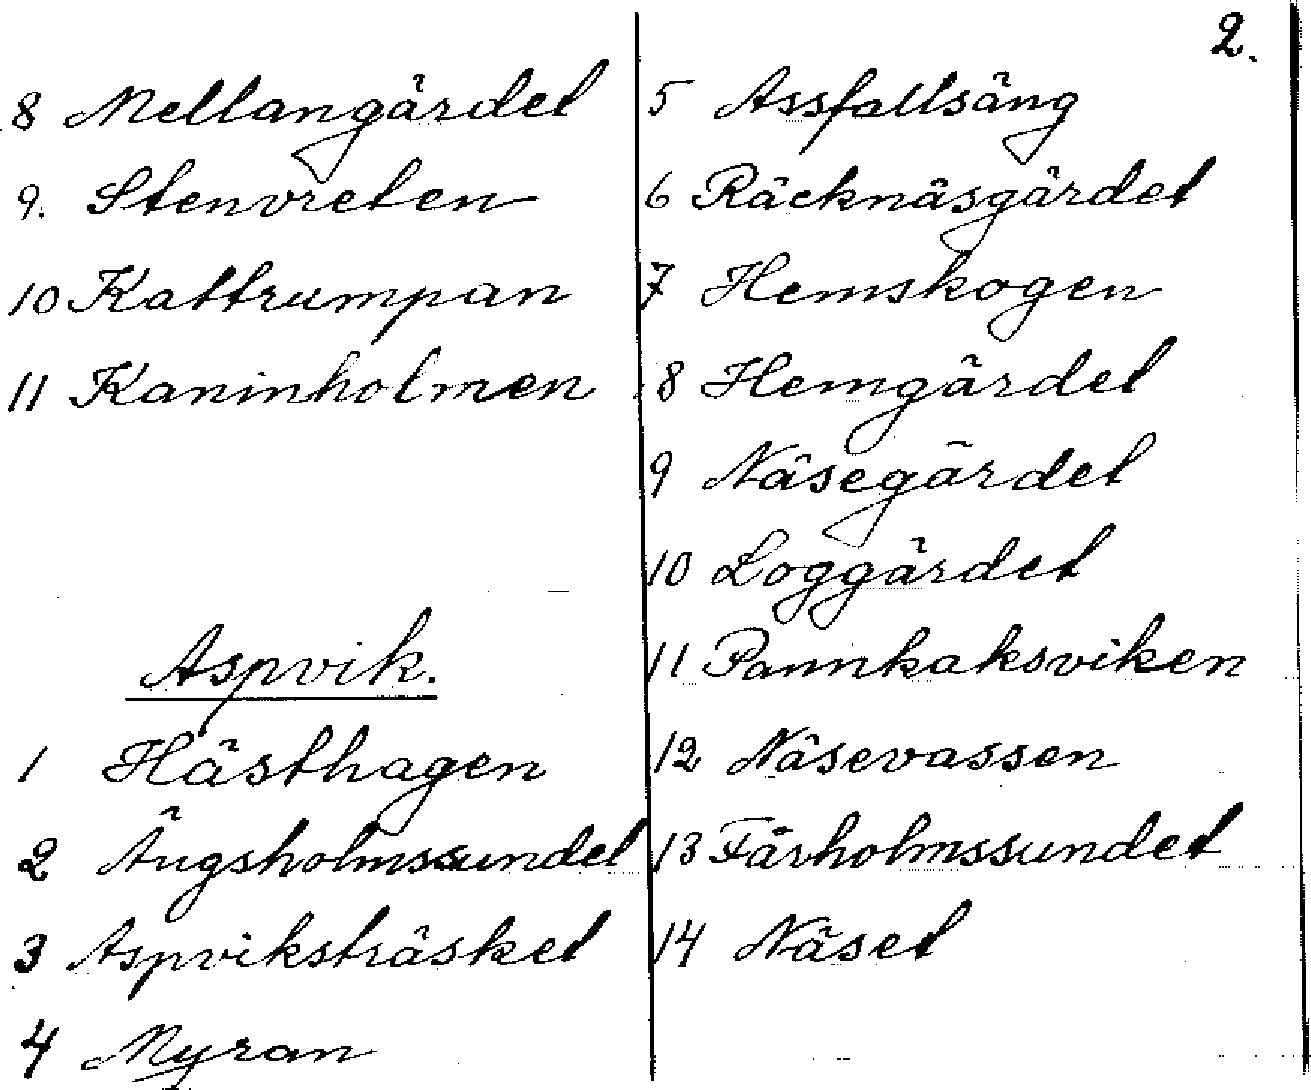 2.
8 Mellangärdet
9. Stenvreten
10 Kattrumpan
11 Kaninholmen
Aspvik.
1 Hästhagen
2 Ängsholmssundet
3 Aspviksträsket
4 Myran
5 Assfallsäng
6 Räcknäsgärdet
7 Hemskogen
8 Hemgärdet
9 Näsegärdet
10 Loggärdet
11 Pannkaksviken
12 Näsevassen
13 Färholmssundet
14 Näset